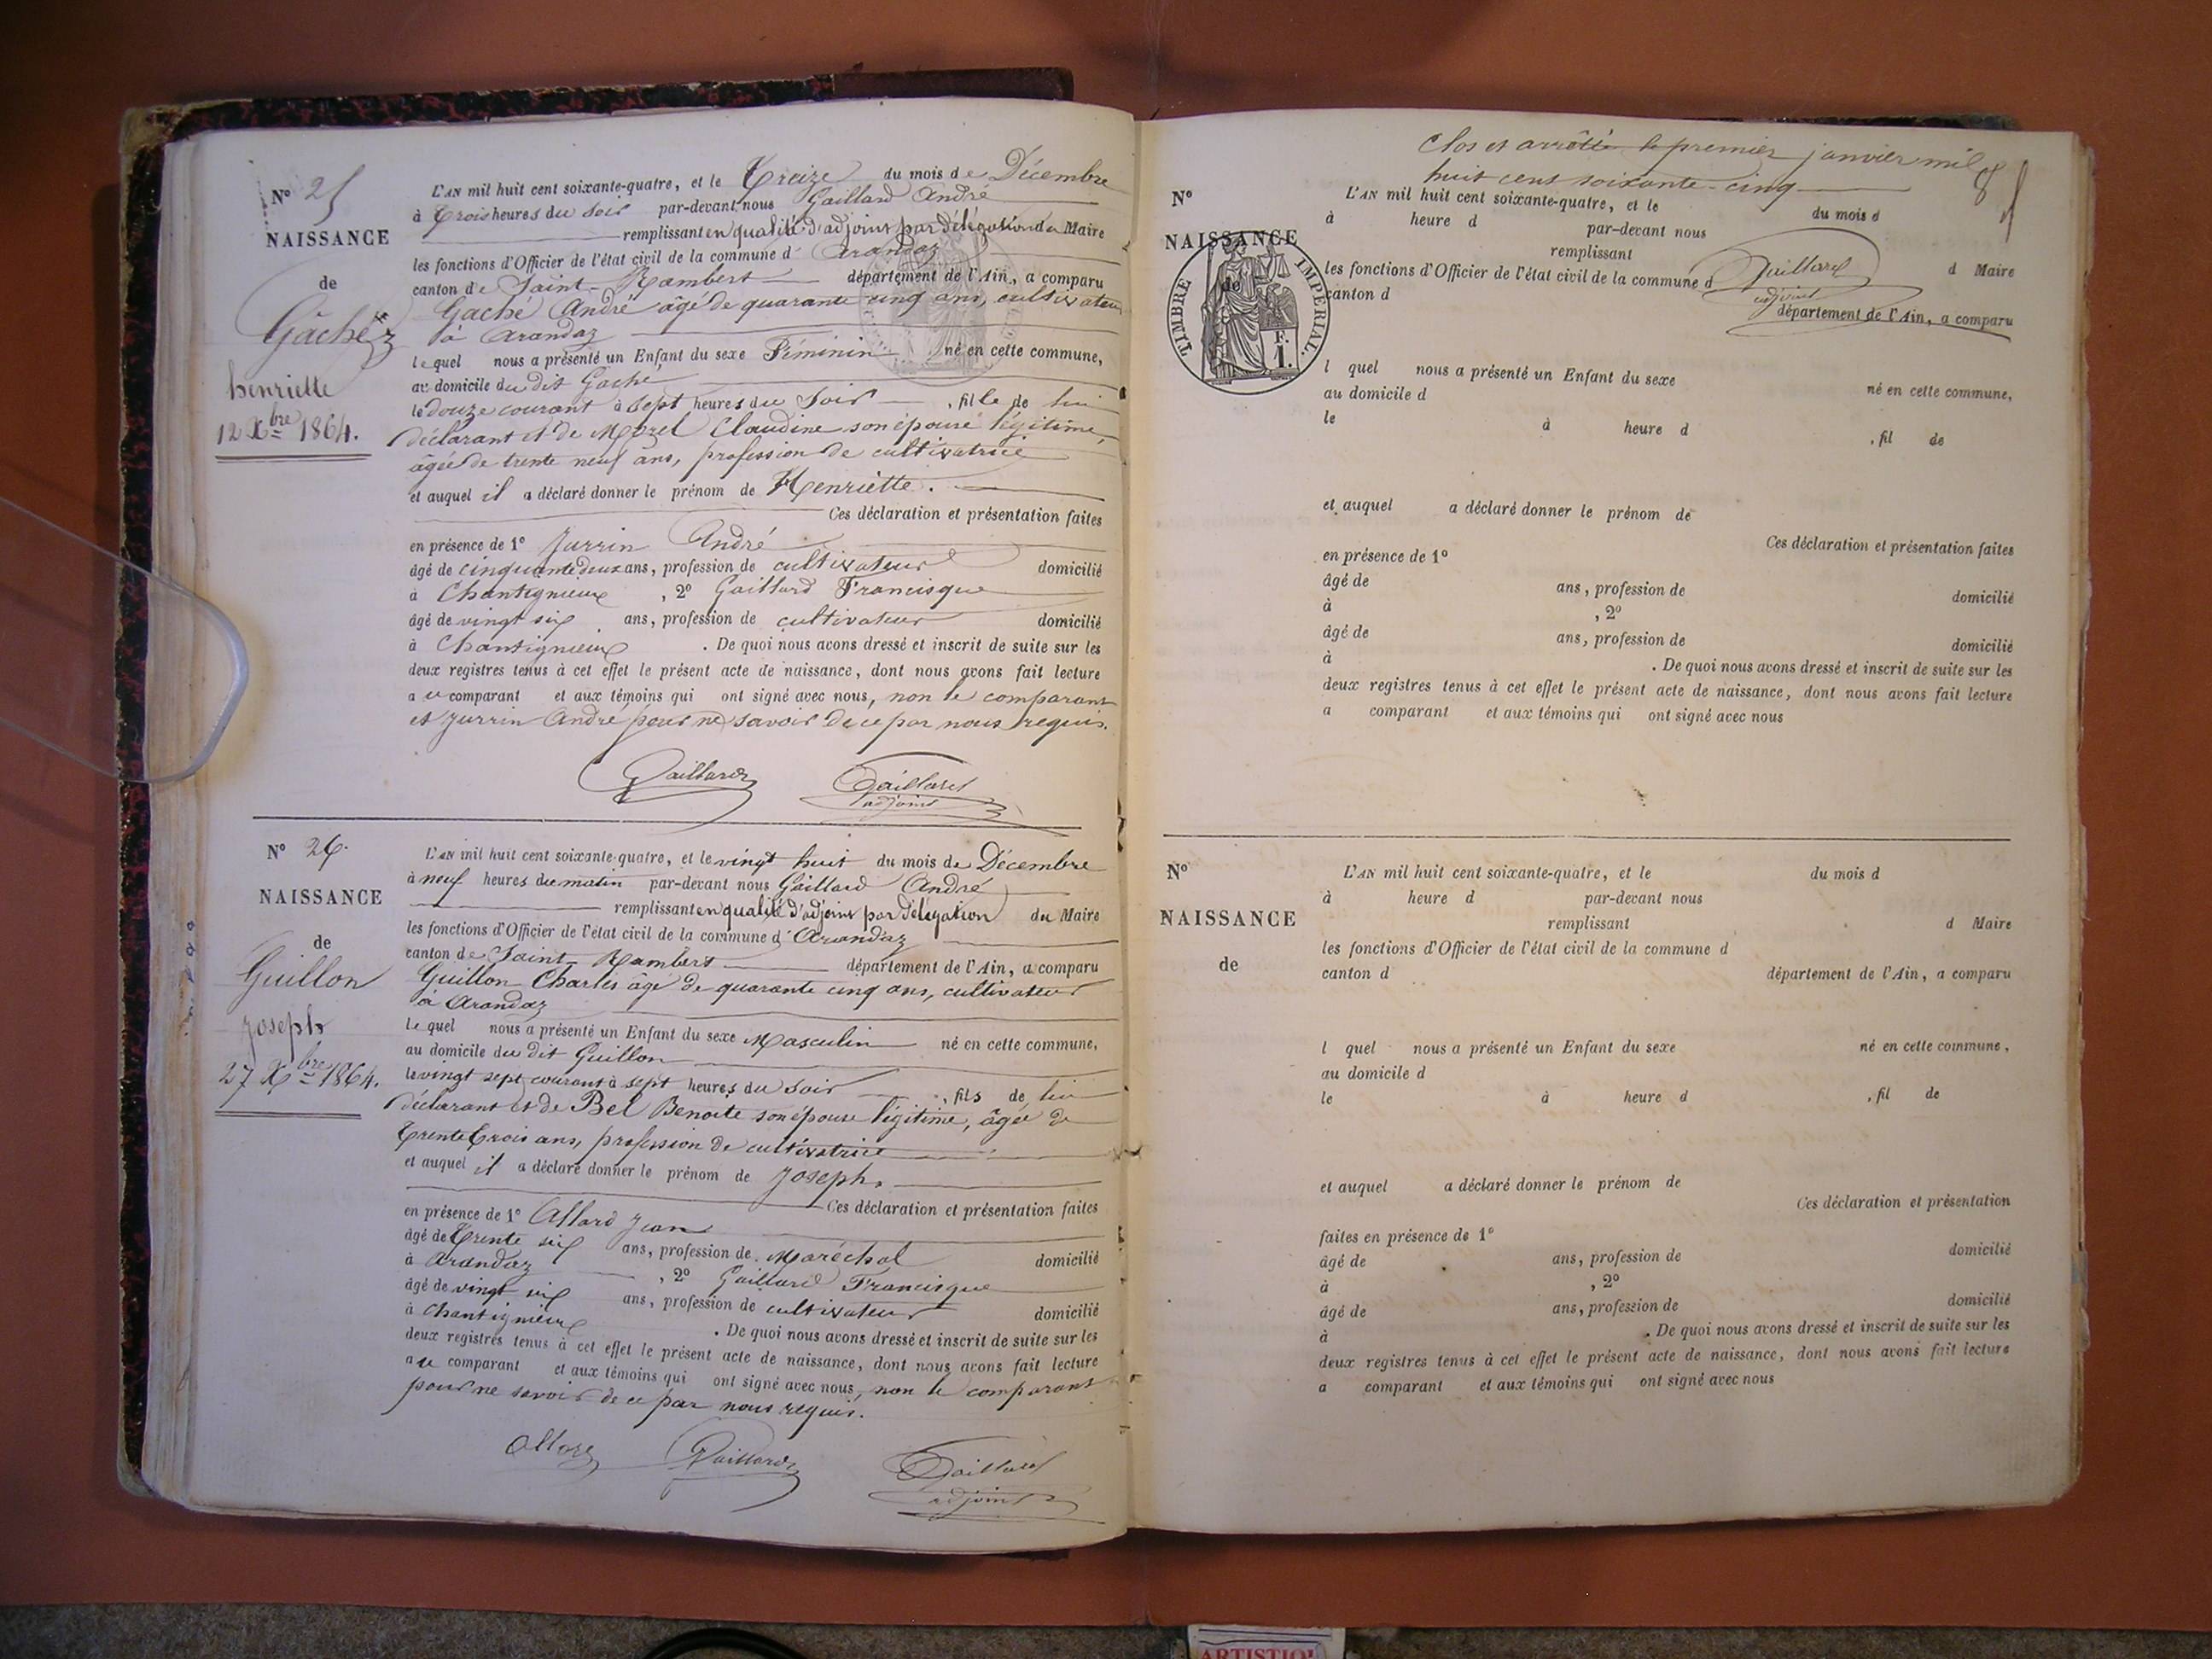 N° 25
NAISSANCE
de
Gâchez
henriette
12 Xbre 1864.
L'AN mil huit cent soixante-quatre, et le Treize du mois de Décembre
à Trois heures du soir par-devant nous Gaillard André
remplissant en qualité d'adjoint par délégation du Maire
les fonctions d'Officier de l'état civil de la commune d' Arandaz
canton de Saint-Rambert département de l'Ain, a comparu
Gaché André âgé de quarante cinq ans, cultivateur
à Arandaz
lequel nous a présenté un Enfant du sexe Féminin né en cette commune,
au domicile du dit Gaché
le douze courant à sept heures du soir , fille de lui
déclarant et de Morel Claudine son épouse légitime,
âgée de trente neuf ans, profession de cultivatrice
et auquel il a déclaré donner le prénom de Henriette.
Ces déclaration et présentation faites
en présence de 1° Jurrin André
âgé de cinquante deux ans, profession de cultivateur domicilié
à Chantignieux , 2° Gaillard Francisque
âgé de vingt six ans, profession de cultivateur domicilié
à Chantignieux . De quoi nous avons dressé et inscrit de suite sur les
deux registres tenus à cet effet le présent acte de naissance, dont nous avons fait lecture
au comparant et aux témoins qui ont signé avec nous, non le comparant
et Jurrin André pour ne savoir de ce par nous requis.
Gaillard Gaillard
adjoint
N° 26.
NAISSANCE
de
Guillon
Joseph
27 Xbre 1864.
L'AN mil huit cent soixante-quatre, et le vingt huit du mois de Décembre
à neuf heures du matin par-devant nous Gaillard André
remplissant en qualité d'adjoint par délégation du Maire
les fonctions d'Officier de l'état civil de la commune d' Arandaz
canton de Saint Rambert département de l'Ain, a comparu
Guillon Charles âgé de quarante cinq ans, cultivateur
à Arandaz
lequel nous a présenté un Enfant du sexe Masculin né en cette commune,
au domicile du dit Guillon
le vingt sept courant à sept heures du soir , fils de lui
déclarant et de Bel Benoite son épouse légitime, âgée de
Trente Trois ans, profession de cultivatrice
et auquel il a déclaré donner le prénom de Joseph.
Ces déclaration et présentation faites
en présence de 1° Allard Jean
âgé de Trente six ans, profession de Maréchal domicilié
à Arandaz , 2° Gaillard Francisque
âgé de vingt six ans, profession de cultivateur domicilié
à Chantignieux . De quoi nous avons dressé et inscrit de suite sur les
deux registres tenus à cet effet le présent acte de naissance, dont nous avons fait lecture
au comparant et aux témoins qui ont signé avec nous, non le comparant
pour ne savoir de ce par nous requis.
Allard Gaillard Gaillard
adjoint
Clos et arrêté le premier janvier mil
huit cent soixante-cinq
8
N°
NAISSANCE
de
TIMBRE IMPÉRIAL.
F.
1.
L'AN mil huit cent soixante-quatre, et le du mois d
à heure d par-devant nous
remplissant d Maire
les fonctions d'Officier de l'état civil de la commune d
Gaillard
adjoint
canton d département de l'Ain, a comparu
l quel nous a présenté un Enfant du sexe né en cette commune,
au domicile d
le à heure d , fil de
et auquel a déclaré donner le prénom de
Ces déclaration et présentation faites
en présence de 1°
âgé de ans, profession de domicilié
à , 2°
âgé de ans, profession de domicilié
à . De quoi nous avons dressé et inscrit de suite sur les
deux registres tenus à cet effet le présent acte de naissance, dont nous avons fait lecture
a comparant et aux témoins qui ont signé avec nous
N°
NAISSANCE
de
L'AN mil huit cent soixante-quatre, et le du mois d
à heure d par-devant nous
remplissant d Maire
les fonctions d'Officier de l'état civil de la commune d
canton d département de l'Ain, a comparu
l quel nous a présenté un Enfant du sexe né en cette commune,
au domicile d
le à heure d , fil de
et auquel a déclaré donner le prénom de
Ces déclaration et présentation
faites en présence de 1°
âgé de ans, profession de domicilié
à , 2°
âgé de ans, profession de domicilié
à . De quoi nous avons dressé et inscrit de suite sur les
deux registres tenus à cet effet le présent acte de naissance, dont nous avons fait lecture
a comparant et aux témoins qui ont signé avec nous